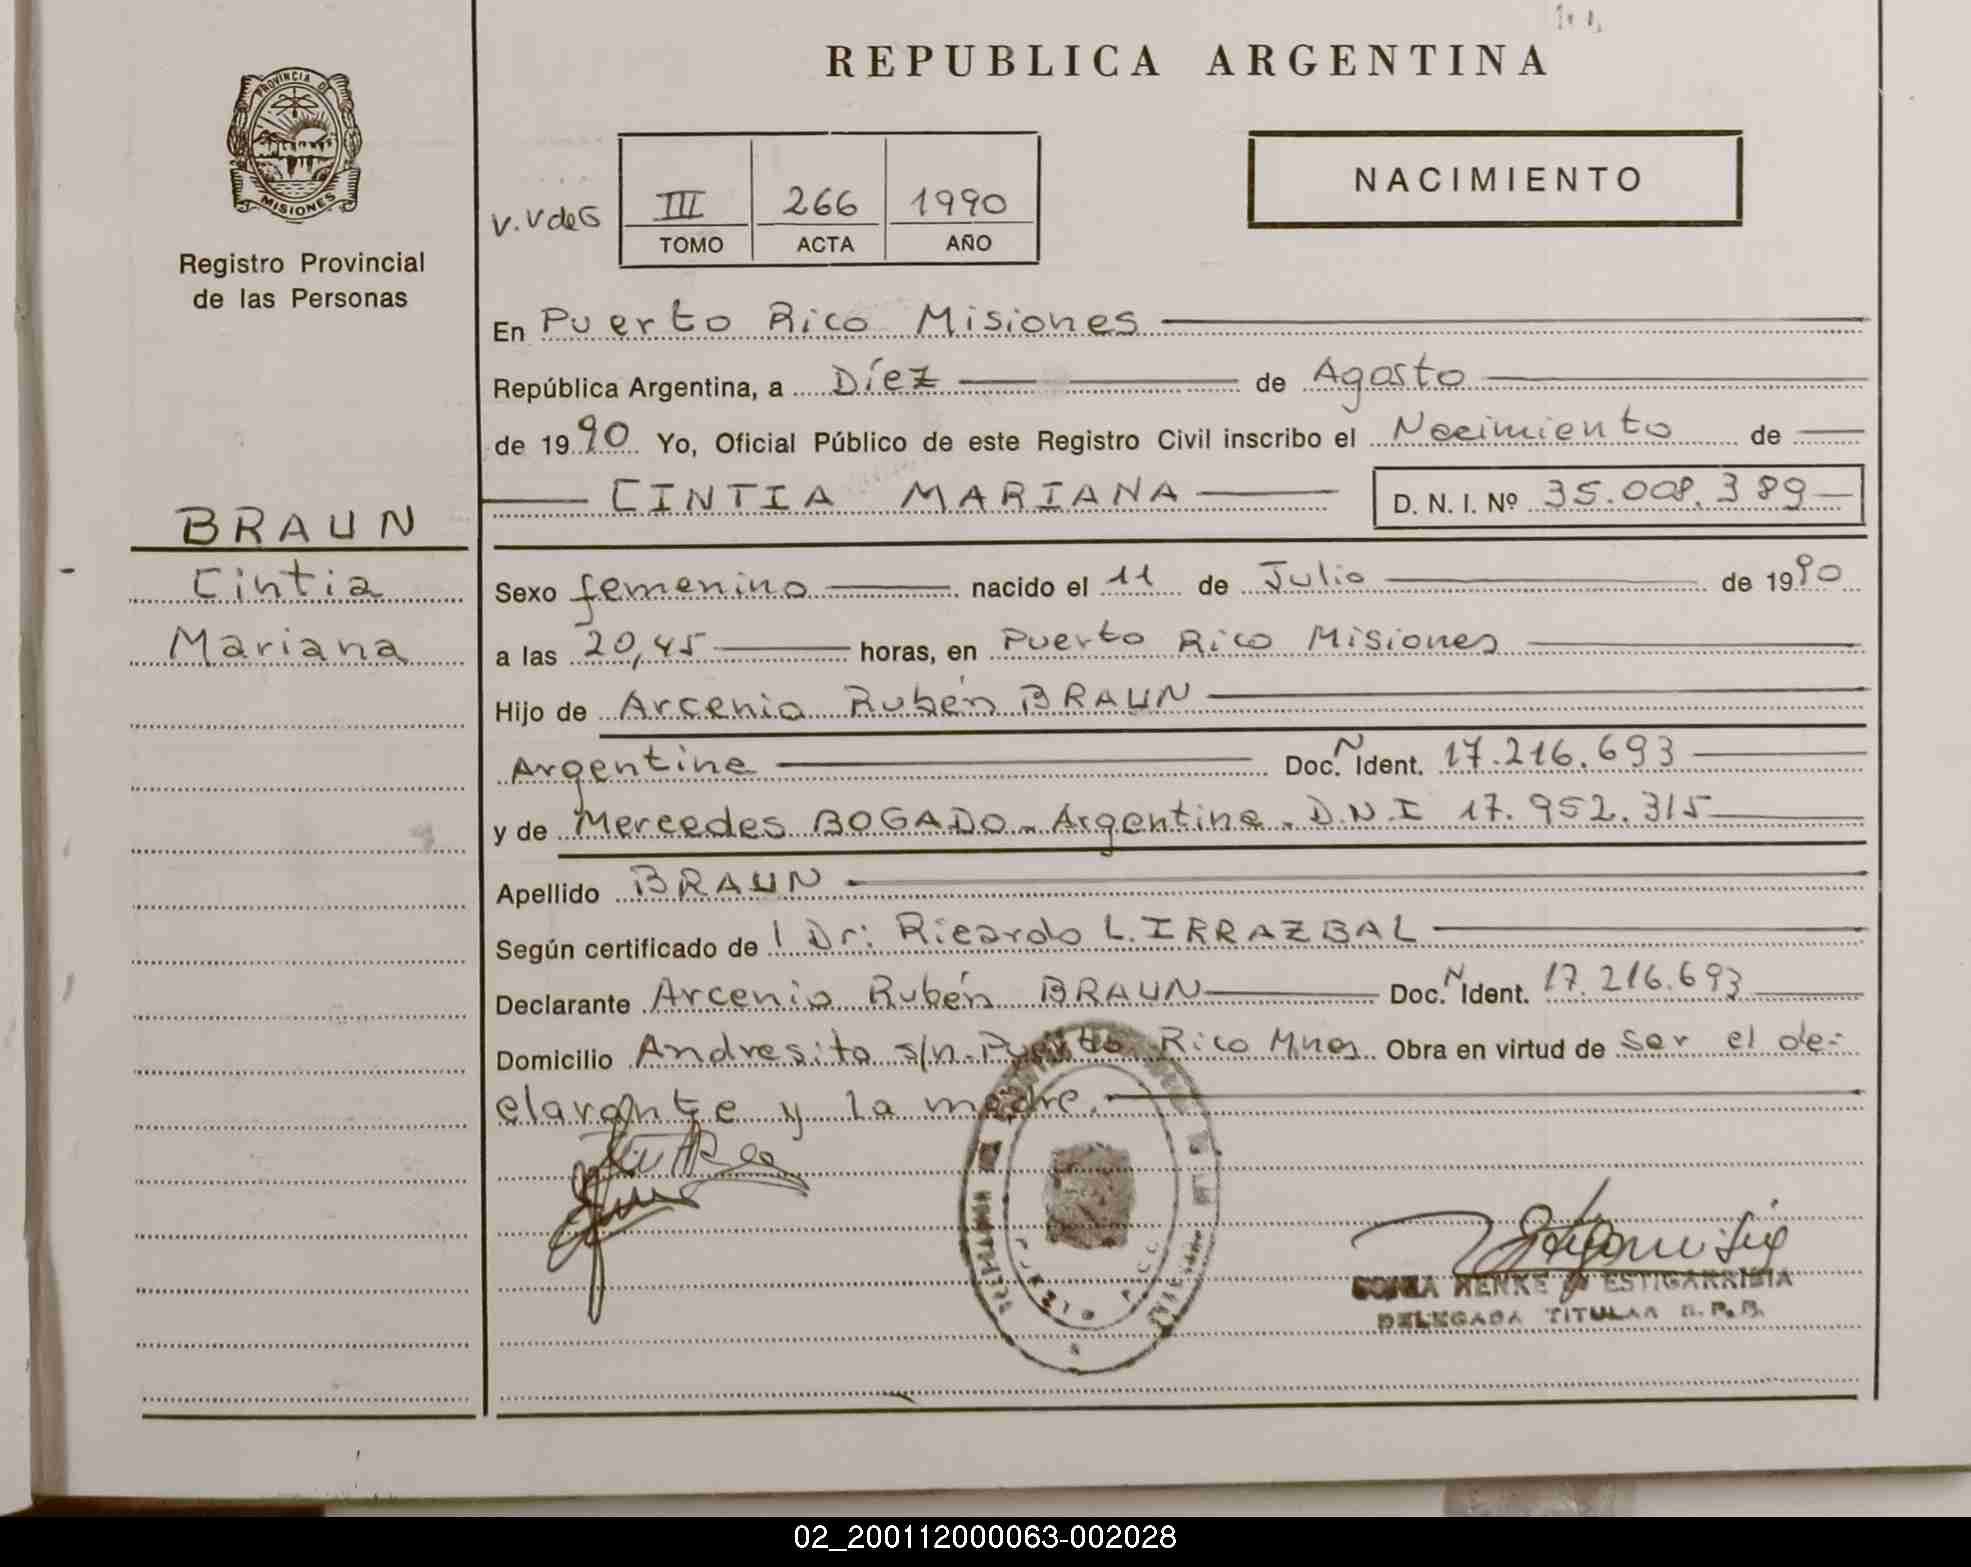 REPUBLICA ARGENTINA
PROVINCIA DE
MISIONES
Registro Provincial
de las Personas
V. V de G
III 266 1990
TOMO ACTA AÑO
NACIMIENTO
En Puerto Rico Misiones
República Argentina, a Díez de Agosto
de 1990 Yo, Oficial Público de este Registro Civil inscribo el Nacimiento de
CINTIA MARIANA D. N. I. Nº 35.008.389
BRAUN
Cintia
Mariana
Sexo femenino nacido el 11 de Julio de 1990
a las 20,45 horas, en Puerto Rico Misiones
Hijo de Arcenio Rubén BRAUN
Argentina Doc. N Ident. 17.216.693
y de Mercedes BOGADO - Argentina - D.N.I 17.952.315
Apellido BRAUN
Según certificado de l Dr: Ricardo L. IRRAZBAL
Declarante Arcenio Rubén BRAUN Doc. N Ident. 17.216.693
Domicilio Andresito s/n - Puerto Rico Mnes Obra en virtud de ser el de-
clarante y la madre.
SONIA HENKE D ESTIGARRIBIA
DELEGADA TITULAR R. P. P.
02_200112000063-002028